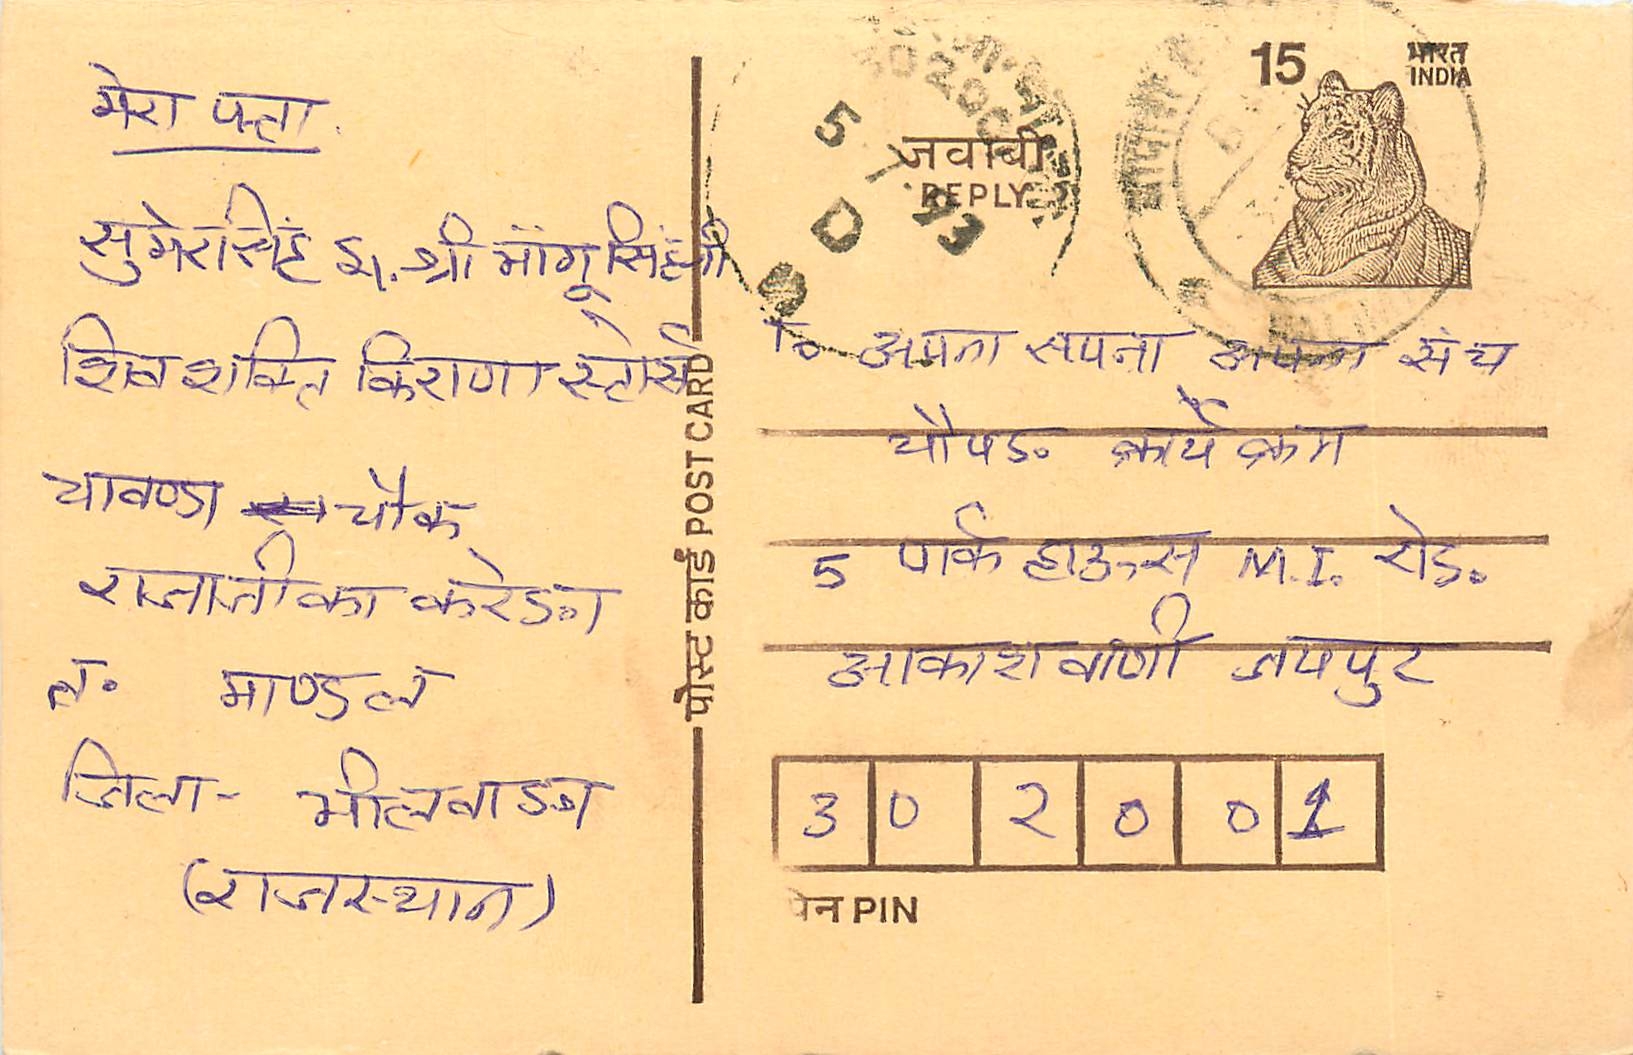 मेरा पत्ता
सुमेरसिंह S/. श्री मांगूसिंहजी
शिव शक्ति किराणा स्टोर्स
चावण्डा चौक
राजाजी का करेड़ा
त. माण्डल
जिला- भीलवाड़ा
(राजस्थान)
पोस्ट कार्ड POST CARD
15 भारत
INDIA
जवाबी
REPLY
5
93
D
अपना सपना अपना मंच
चौपड़ कार्यक्रम
5 पार्क हाऊस M.I. रोड़.
आकाशवाणी जयपुर
302001
पिन PIN